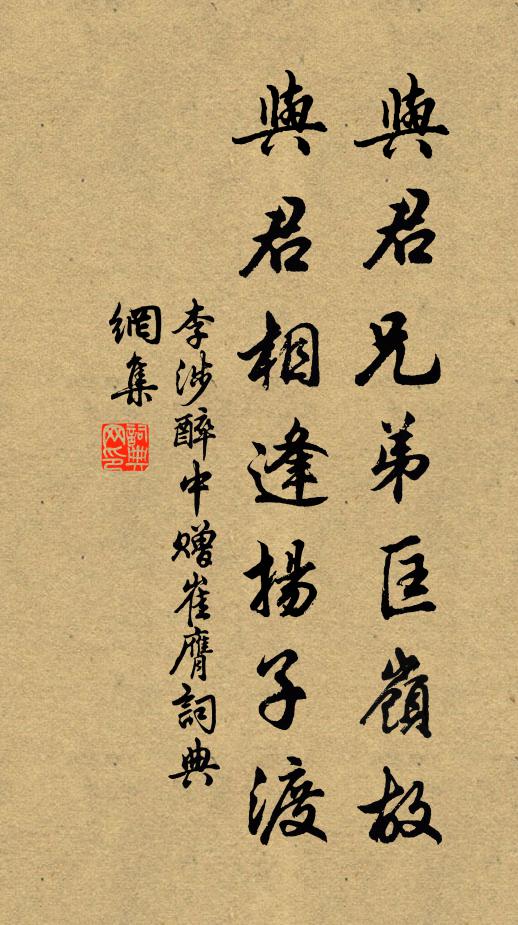 與君兄弟匡嶺故
與君相逢揚子渡
李涉醉中贈崔膺詞典
網集
詞典網印